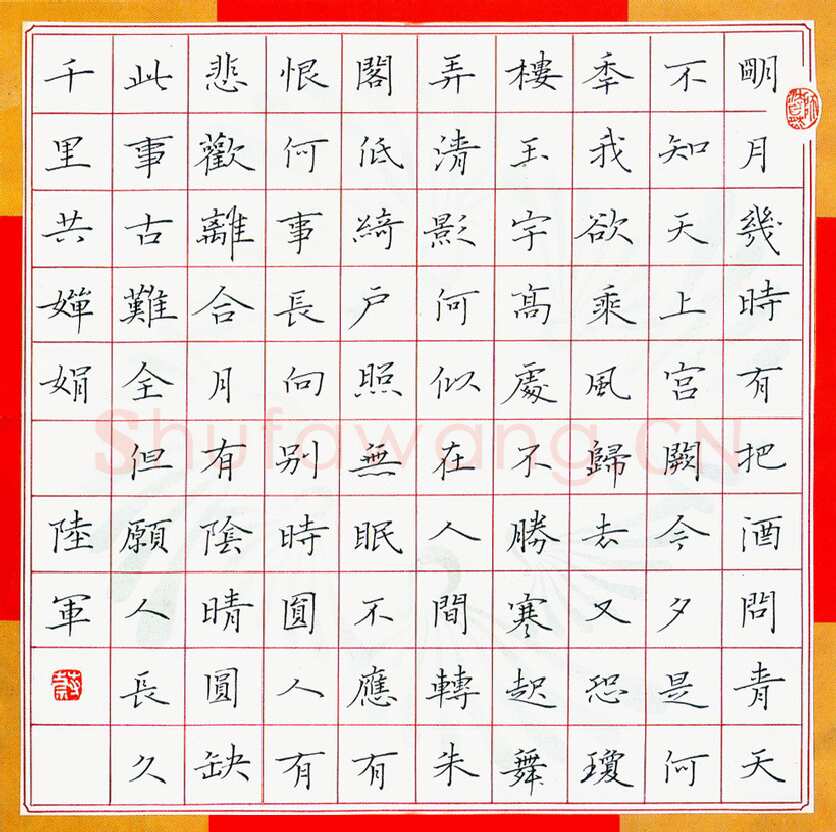 明月幾時有把酒問青天
不知天上宮闕今夕是何
秊我欲乘風歸去又恐瓊
樓玉宇高處不勝寒起舞
弄清影何似在人間轉朱
閣低綺戶照無眠不應有
恨何事長向別時圓人有
悲歡離合月有陰晴圓缺
此事古難全但願人長久
千里共嬋娟 陸軍
Shufawang.CN